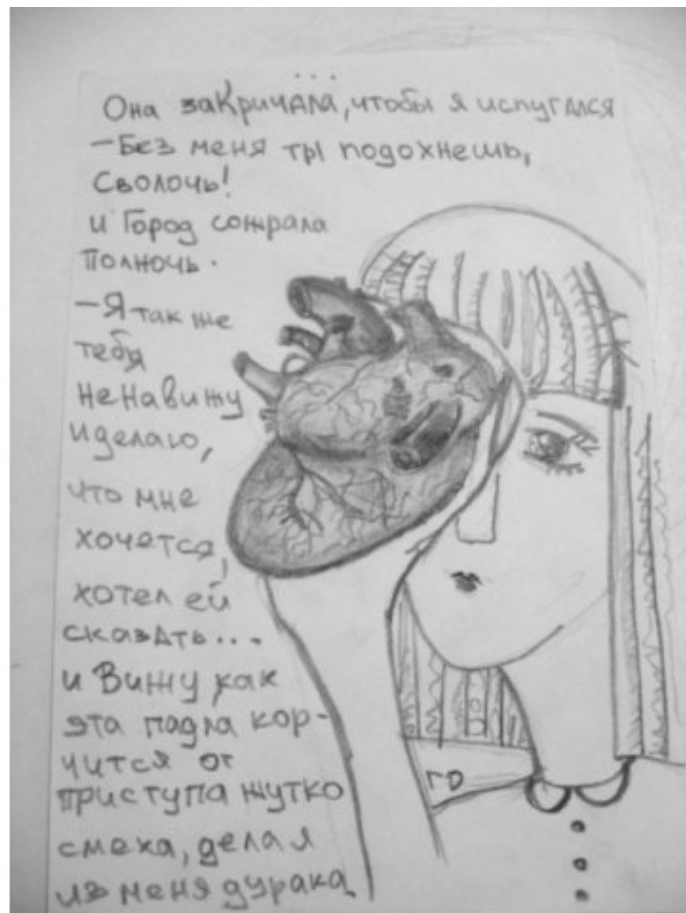 ...
Она заКричала, чтобы я испугался
-Без меня ты подохнешь,
Сволочь!
и Город сожрала
Полночь.
-Я так же
тебя
ненавижу
и делаю,
что мне
хочется,
хотел ей
сказать...
и Вижу как
эта падла кор-
чится от
приступа жутко
смеха, делая
из меня дурака
ГД